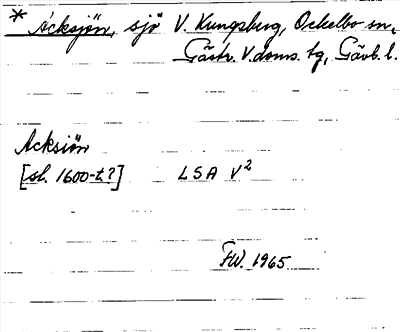 * Acksjön, sjö V. Kungsberg, Ockelbo sn,
Gästr. V. doms. tg, Gävb. l.
Acksiön
[sl. 1600-t.?] LSA V²
FW. 1965